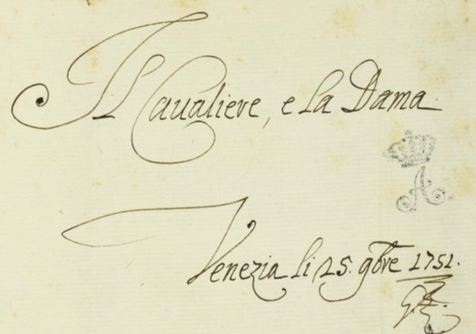 Il Cavaliere, e la Dama.
A
Venezia li 25. 9bre 1751.